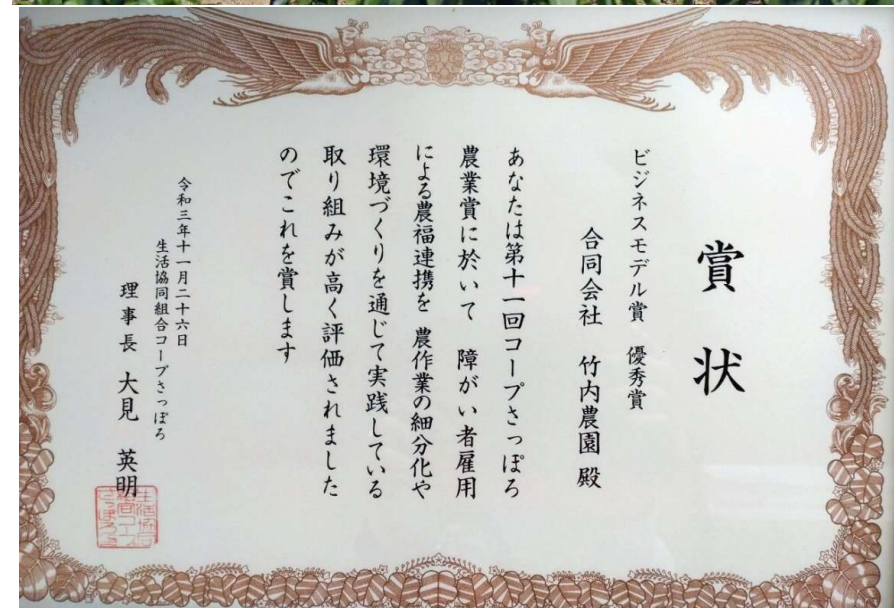 賞状
ビジネスモデル賞 優秀賞
合同会社 竹内農園 殿
あなたは第十一回コープさっぽろ
農業賞に於いて 障がい者雇用
による農福連携を 農作業の細分化や
環境づくりを通じて実践している
取り組みが高く評価されました
のでこれを賞します
令和三年十一月二十六日
生活協同組合コープさっぽろ
理事長 大見 英明